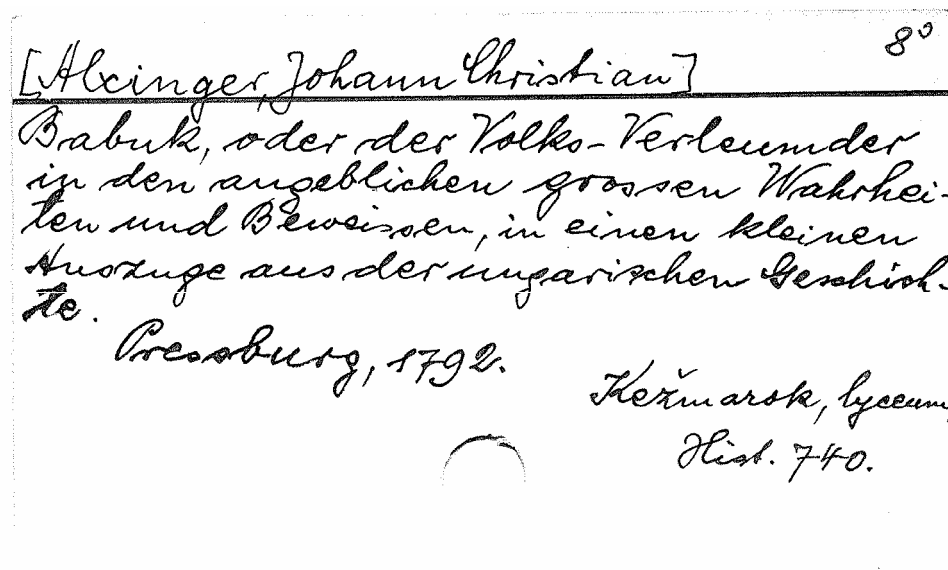 8°
[Alxinger, Johann Christian]
Babuk, oder der Volks-Verleumder
in den angeblichen grossen Wahrhei-
ten und Beweissen, in einen kleinen
Auszuge aus der ungarischen Geschich-
te.
Pressburg, 1792.
Kežmarok, lyceum,
Hist. 740.